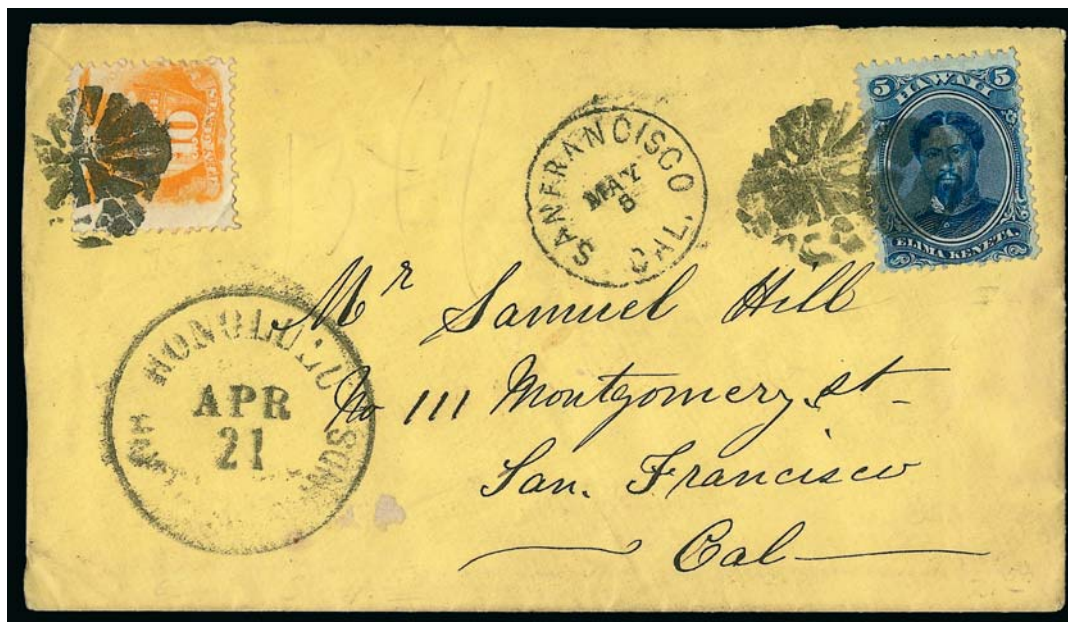 10
TEN CENTS
SAN FRANCISCO
MAY
5
CAL.
5 HAWAII 5
ELIMA KENETA.
HONOLULU
APR
21
Mr Samuel Hill
No 111 Montgomery st
San. Francisco
Cal